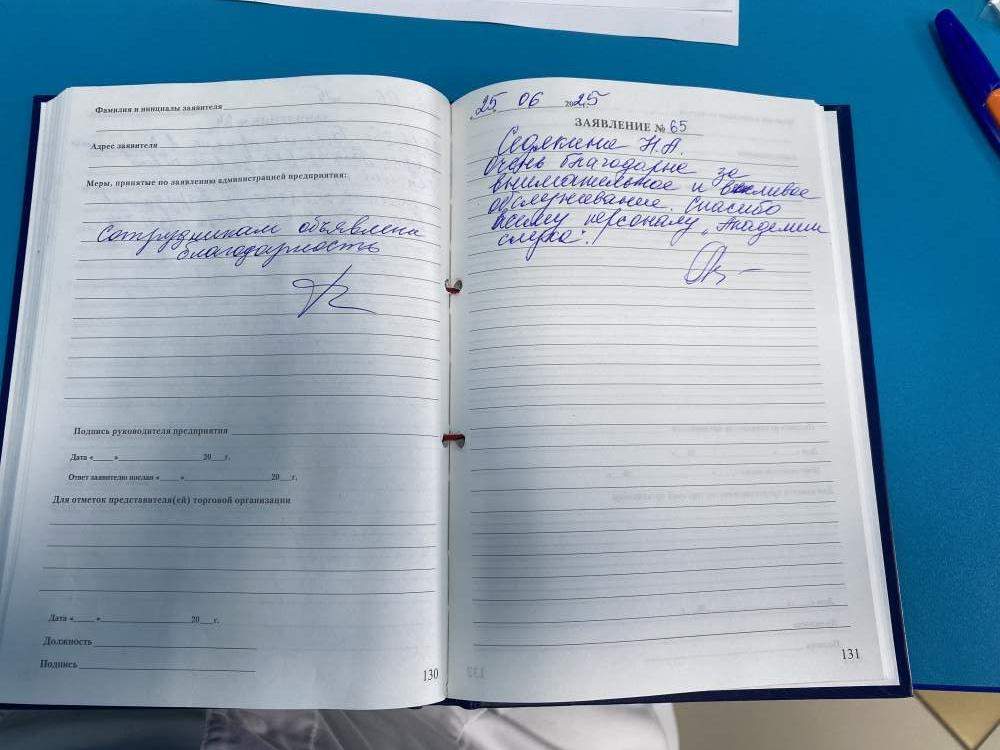 Фамилия и инициалы заявителя
Адрес заявителя
Меры, принятые по заявлению администрацией предприятия:
Сотрудникам объявлена
благодарность
Подпись руководителя предприятия
Дата «____»____________20___г.
Ответ заявителю послан «____»____________20___г.
Для отметок представителя(ей) торговой организации
Дата «____»____________20___г.
Должность
Подпись
130
25 06 2025
ЗАЯВЛЕНИЕ № 65
Н.А.
Очень благодарна за
внимательное и вежливое
обслуживание. Спасибо
всему персоналу "Академии
слуха".!
131